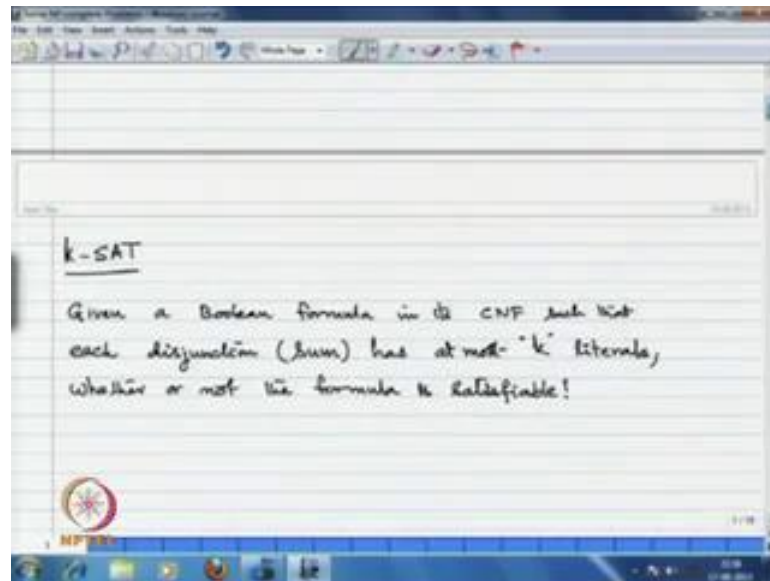 File Edit View Insert Actions Tools Help
k-SAT
Given a Boolean formula in its CNF such that
each disjunction (Sum) has at most "k" literals,
whether or not the formula is Satisfiable!
NPTEL